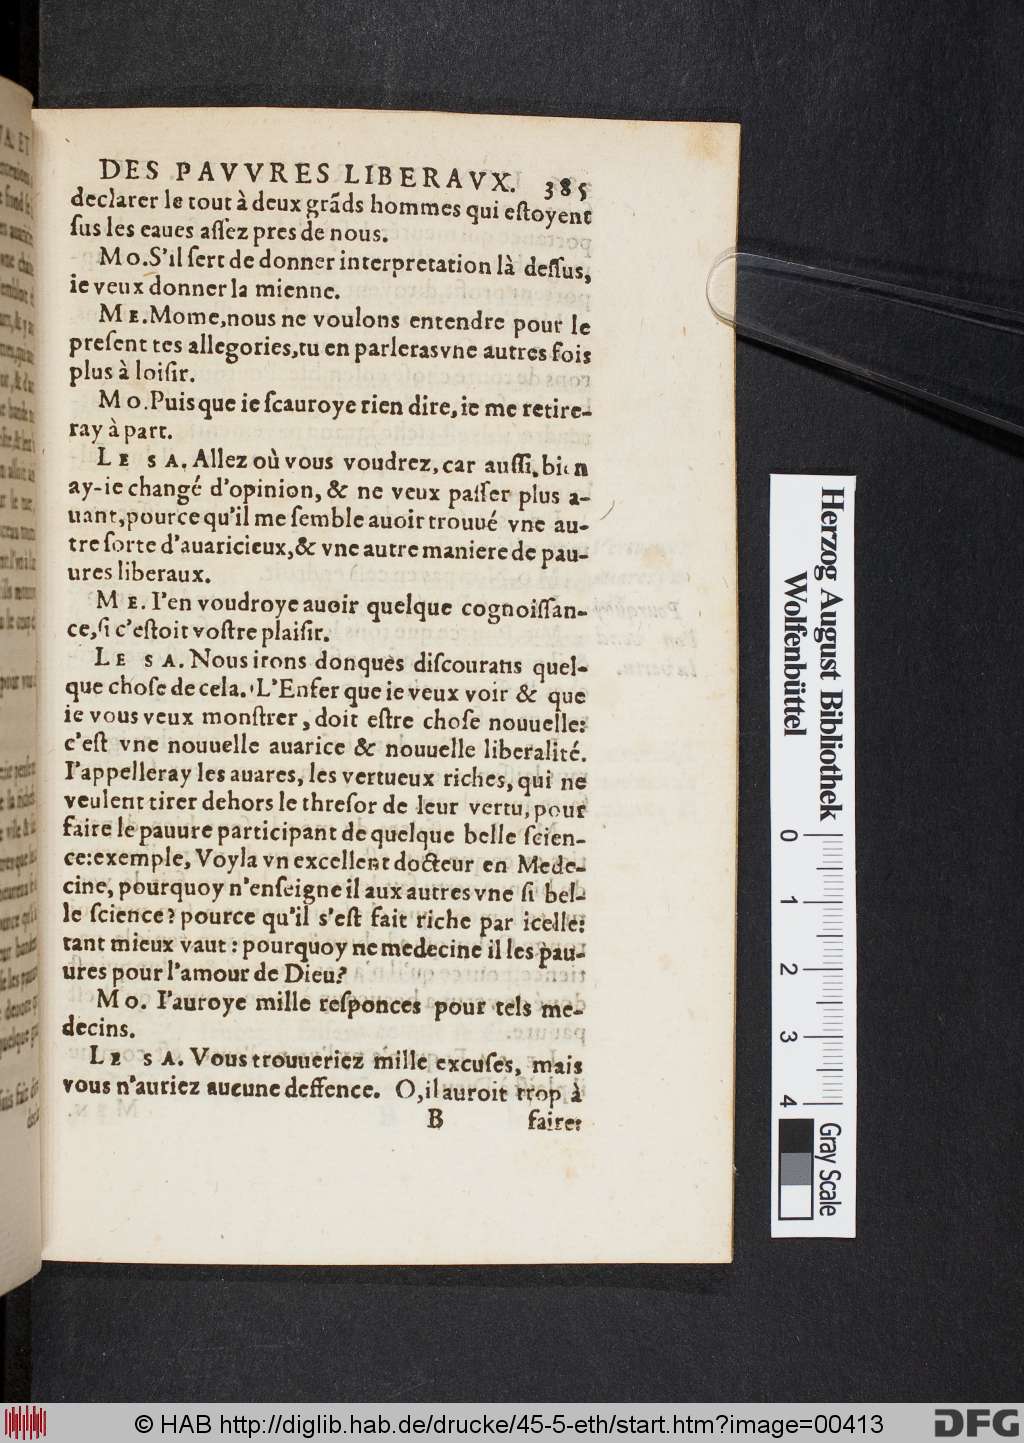 DES PAVVRES LIBERAVX. 385
declarer le tout à deux grãds hommes qui eſtoyent
ſus les eaues aſſez pres de nous.
Mo. S'il ſert de donner interpretation là deſſus,
ie veux donner la mienne.
ME. Mome, nous ne voulons entendre pour le
preſent tes allegories, tu en parleras vne autres fois
plus à loiſir.
Mo. Puis que ie ſcauroye rien dire, ie me retire-
ray à part.
LE SA. Allez où vous voudrez, car auſſi bien
ay-ie changé d'opinion, & ne veux paſſer plus a-
uant, pource qu'il me ſemble auoir trouué vne au-
tre ſorte d'auaricieux, & vne autre maniere de pau-
ures liberaux.
ME. I'en voudroye auoir quelque cognoiſſan-
ce, ſi c'eſtoit voſtre plaiſir.
LE SA. Nous irons donques diſcourans quel-
que choſe de cela. L'Enfer que ie veux voir & que
ie vous veux monſtrer, doit eſtre choſe nouuelle:
c'eſt vne nouuelle auarice & nouuelle liberalité.
I'appelleray les auares, les vertueux riches, qui ne
veulent tirer dehors le threſor de leur vertu, pour
faire le pauure participant de quelque belle ſcien-
ce: exemple, Voyla vn excellent docteur en Mede-
cine, pourquoy n'enſeigne il aux autres vne ſi bel-
le ſcience? pource qu'il s'eſt fait riche par icelle:
tant mieux vaut: pourquoy ne medecine il les pau-
ures pour l'amour de Dieu?
Mo. I'auroye mille reſponces pour tels me-
decins.
LE SA. Vous trouueriez mille excuſes, mais
vous n'auriez aucune deffence. O, il auroit trop à
B faire:
Herzog August Bibliothek
Wolfenbüttel
0 1 2 3 4
Gray Scale
© HAB http://diglib.hab.de/drucke/45-5-eth/start.htm?image=00413
DFG